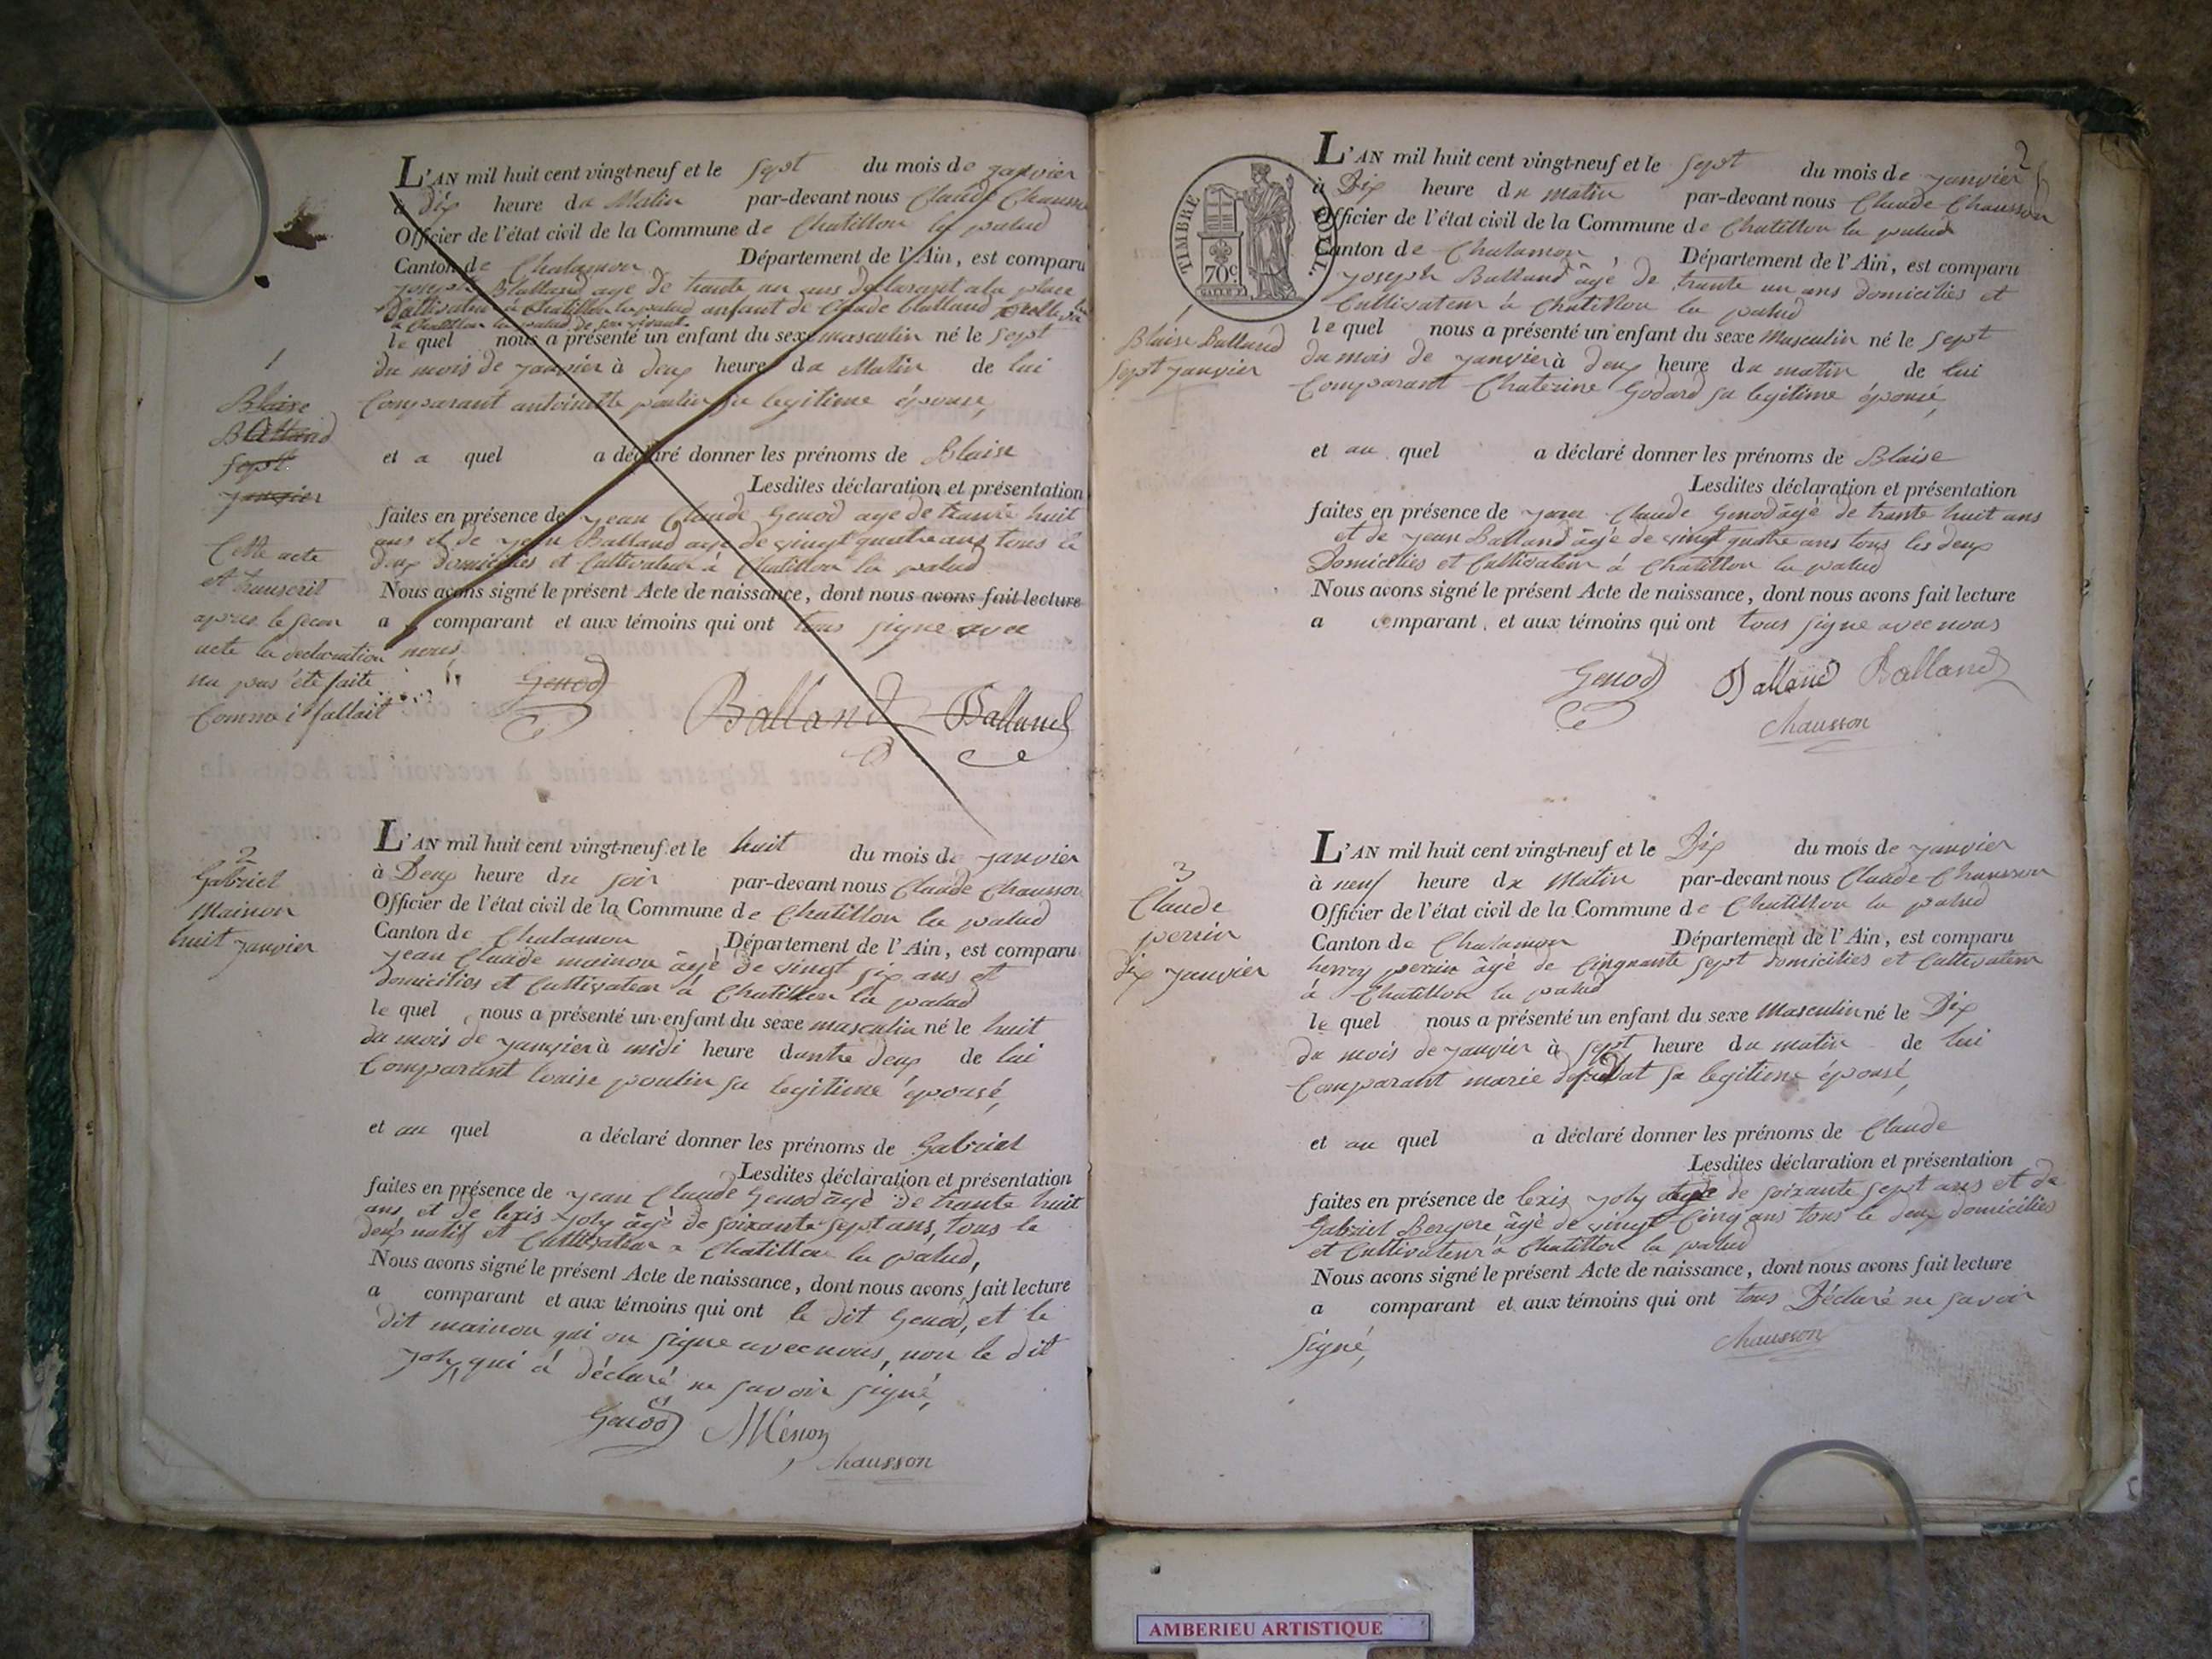 L'AN mil huit cent vingt-neuf et le sept du mois de janvier
à dix heure du Matin par-devant nous Claude Chausson
Officier de l'état civil de la Commune de Chatillon la palud
Canton de Chalamon Département de l'Ain, est comparu
joseph Balland age de trante un ans declarant a la place
Cultivateur a Chatillon la palud anfant de Claude Balland
a Chatillon la palud de son vivant
le quel nous a présenté un enfant du sexe masculin né le sept
du mois de janvier à deux heure du Matin de lui
Comparant antoinette poulin sa legitime épouse,
et a quel a déclaré donner les prénoms de Blaise
Lesdites déclaration et présentation
faites en présence de jean Claude Genod age de trante huit
ans et de jean Balland age de vingt quatre ans tous le
deux domiciliés et Cultivateur à Chatillon la palud
Nous avons signé le présent Acte de naissance, dont nous avons fait lecture
a comparant et aux témoins qui ont tous signe avec
nous,
Genod Balland Balland
1
Blaise
Balland
sept
janvier
Cette acte
et transcrit
apres le secon
acte la declaration
na pas été faite
Comme i fallait
L'AN mil huit cent vingt-neuf et le huit du mois de janvier
à Deux heure du soir par-devant nous Claude Chausson
Officier de l'état civil de la Commune de Chatillon la palud
Canton de Chalamon Département de l'Ain, est comparu
jean Claude mainon âgé de vingt six ans et
domicilies et Cultivateur à Chatillon la palud
le quel nous a présenté un enfant du sexe masculin né le huit
du mois de janvier à midi heure dantre deux de lui
Comparant louise poulin sa legitime épousé,
et au quel a déclaré donner les prénoms de Gabriel
Lesdites déclaration et présentation
faites en présence de jean Claude Genod âgé de trante huit
ans, et de lexis joly âgé de soixante sept ans, tous le
deux natif et Cultivateur a Chatillon la palud,
Nous avons signé le présent Acte de naissance, dont nous avons fait lecture
a comparant et aux témoins qui ont le dit Genod, et le
dit mainon qui on signe avec nous, non le dit
joly qui à déclaré ne savoir signé,
Genod Ménon
Chausson
2
Gabriel
Mainon
huit janvier
2
L'AN mil huit cent vingt-neuf et le sept du mois de janvier
à Dix heure du matin par-devant nous Claude Chausson
Officier de l'état civil de la Commune de Chatillon la palud
Canton de Chalamon Département de l'Ain, est comparu
joseph Balland âgé de trante un ans domicilies et
Cultivateur à Chatillon la palud
le quel nous a présenté un enfant du sexe Masculin né le sept
du mois de janvier à deux heure du matin de lui
Comparant Chaterine Godard sa legitime épousé,
et au quel a déclaré donner les prénoms de Blaise
Lesdites déclaration et présentation
faites en présence de jean Claude Genod âgé de trante huit ans
et de jean Balland âgé de vingt quatre ans tous les deux
Domicilies et Cultivateur à Chatillon la palud
Nous avons signé le présent Acte de naissance, dont nous avons fait lecture
a comparant et aux témoins qui ont tous signe avec nous
Genod Balland Balland
Chausson
TIMBRE ROYAL
70c.
1
Blaise Balland
sept janvier
L'AN mil huit cent vingt-neuf et le Dix du mois de janvier
à neuf heure du Matin par-devant nous Claude Chausson
Officier de l'état civil de la Commune de Chatillon la palud
Canton de Chalamon Département de l'Ain, est comparu
henry perrin âgé de Cinquante sept domicilies et Cultivateur
à Chatillon la palud
le quel nous a présenté un enfant du sexe Masculin né le Dix
du mois de janvier à sept heure du matin de lui
Comparant marie sa legitime épousé,
et au quel a déclaré donner les prénoms de Claude
Lesdites déclaration et présentation
faites en présence de lexis joly de soixante sept ans et de
Gabriel Bergere âgé de vingt Cinq ans tous le deux domicilies
et Cultivateur à Chatillon la palud
Nous avons signé le présent Acte de naissance, dont nous avons fait lecture
a comparant et aux témoins qui ont tous Déclaré ne savoir
signé,
Chausson
3
Claude
perrin
Dix janvier
AMBERIEU ARTISTIQUE